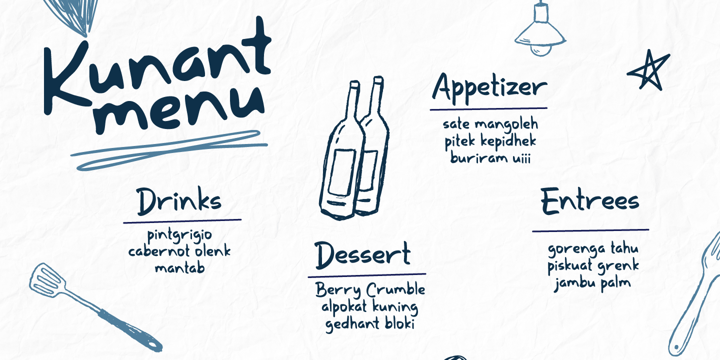 Kunant
menu
Drinks
pintgrigio
cabernot olenk
mantab
Dessert
Berry Crumble
alpokat kuning
gedhant bloki
Appetizer
sate mangoleh
pitek kepidhek
buriram uiii
Entrees
gorenga tahu
piskuat grenk
jambu palm